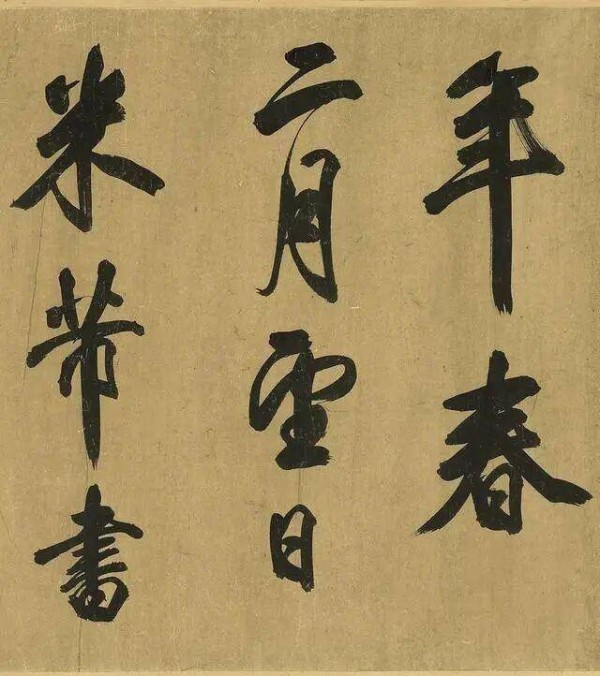 年春
二月望日
米芾書